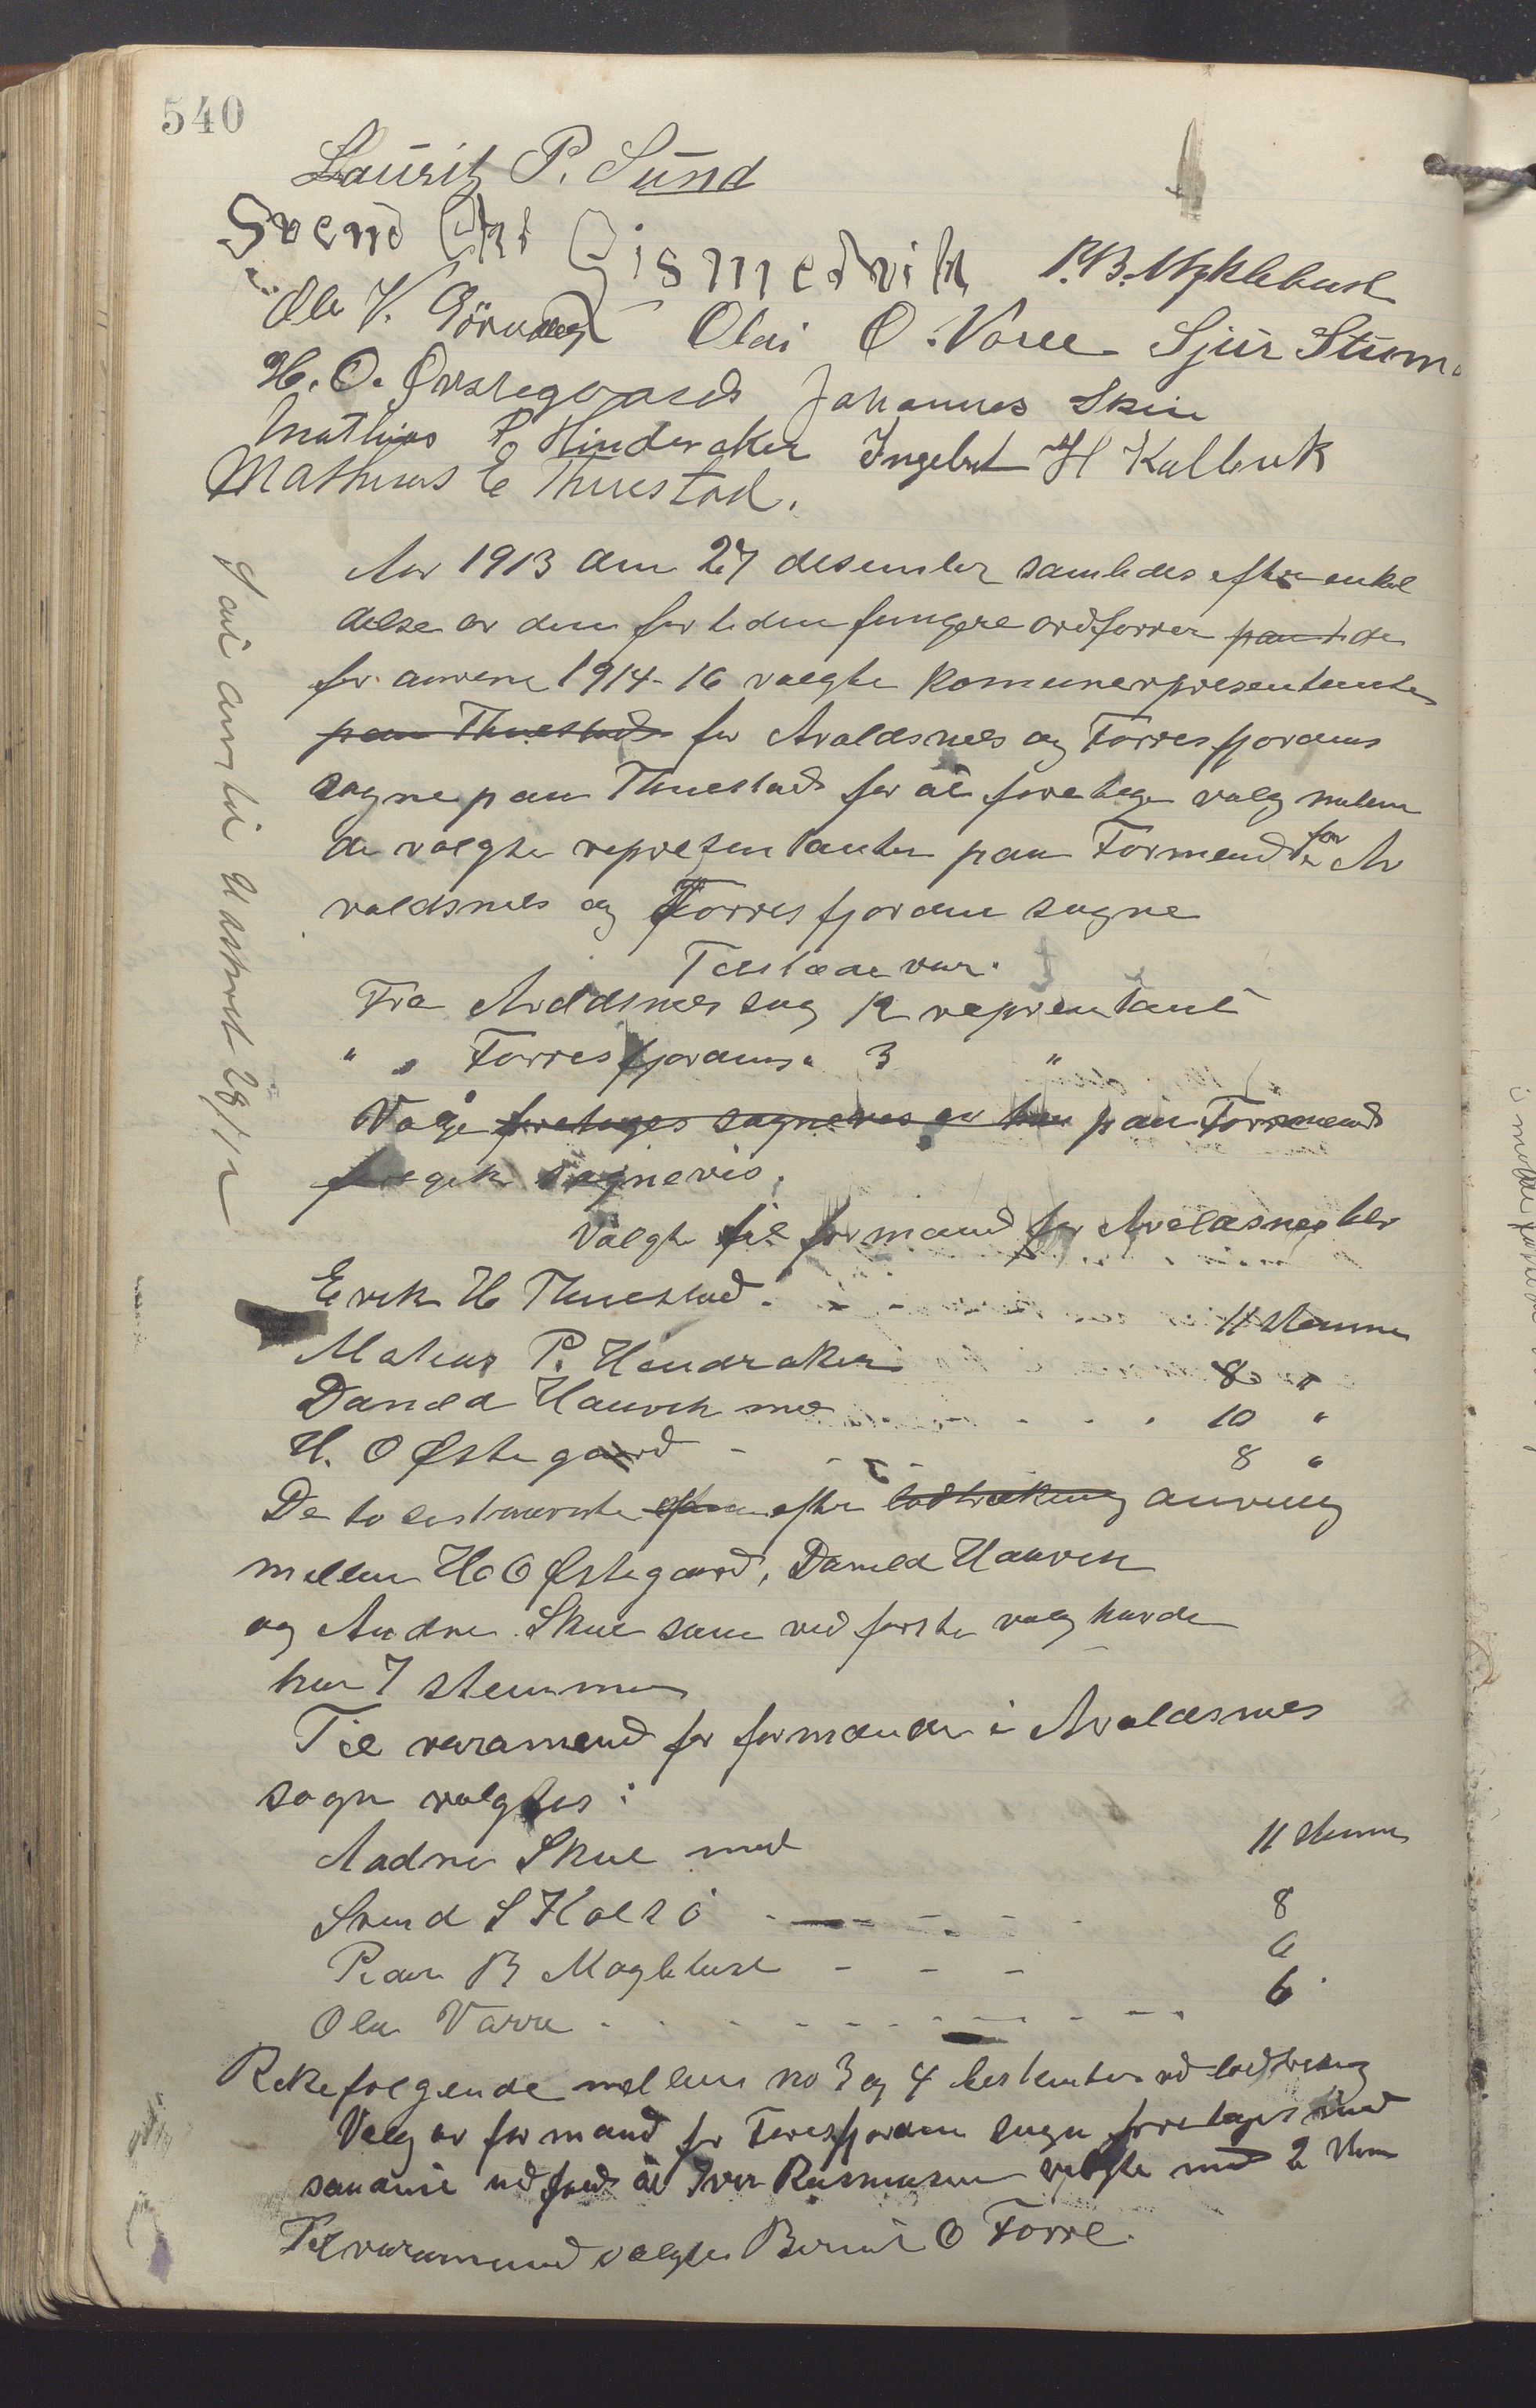 540
Lauritz P. Sund
Svend Chr Gismervik P. B. Myklebust
Ole V. Olai O. Voree Sjur Strøm
H. O. Østregaard Johannes Skeie
Mathias P Hinderaker Ingebret H Kallevik
Mathias E Thuestad.
Aar 1913 den 27 desember samledes efter enkal
delse av den for tiden fungere ordforrer paa de
for aarene 1914-16 valgte Komunerepresentanter
paa Thuestad for Avaldsnes og Torresfjordens
sogne paa Thuestad for at foretage valg melem
de valgte representanter paa Formend for Av
valdsnes og Torresfjorden sogne
Tilstede var.
Fra Avaldsnes sog 12 representant
" " Torresfjordens " 3 "
Valge foretages sognevis av paa Formend
foregik sognevis.
Valgte til formænd for Avaldsnes blev
Erik H Thuestad. - - - 11 stemmer
Matias P. Hendraker 8 "
Daneld Haavik med - - - 10 "
H. O Østegaard - - - 8 "
De to sistnævnte efter efter lodtrækning omvalg
mellem H O Østegaard, Daneld Haavik
og Andre Skeie som ved første valg havde
hver 7 stemmer
Til varamend for formænden i Avaldsnes
sogn valgtes:
Aadne Skeie med 11 stemmer
Svend S Kolsø - - - - 8
Peder B Myklebust - - - 6
Ola Vorre - - - - 6.
Rekefølgende mellem no 3 og 4 bestemtes ved lodtrekning
Valg av formand for Toresfjorden sogn foretoges med
samme at Iver Rasmusen valgte med 2 stem
Til varamand valgtes Bernt O Torre.
28/12